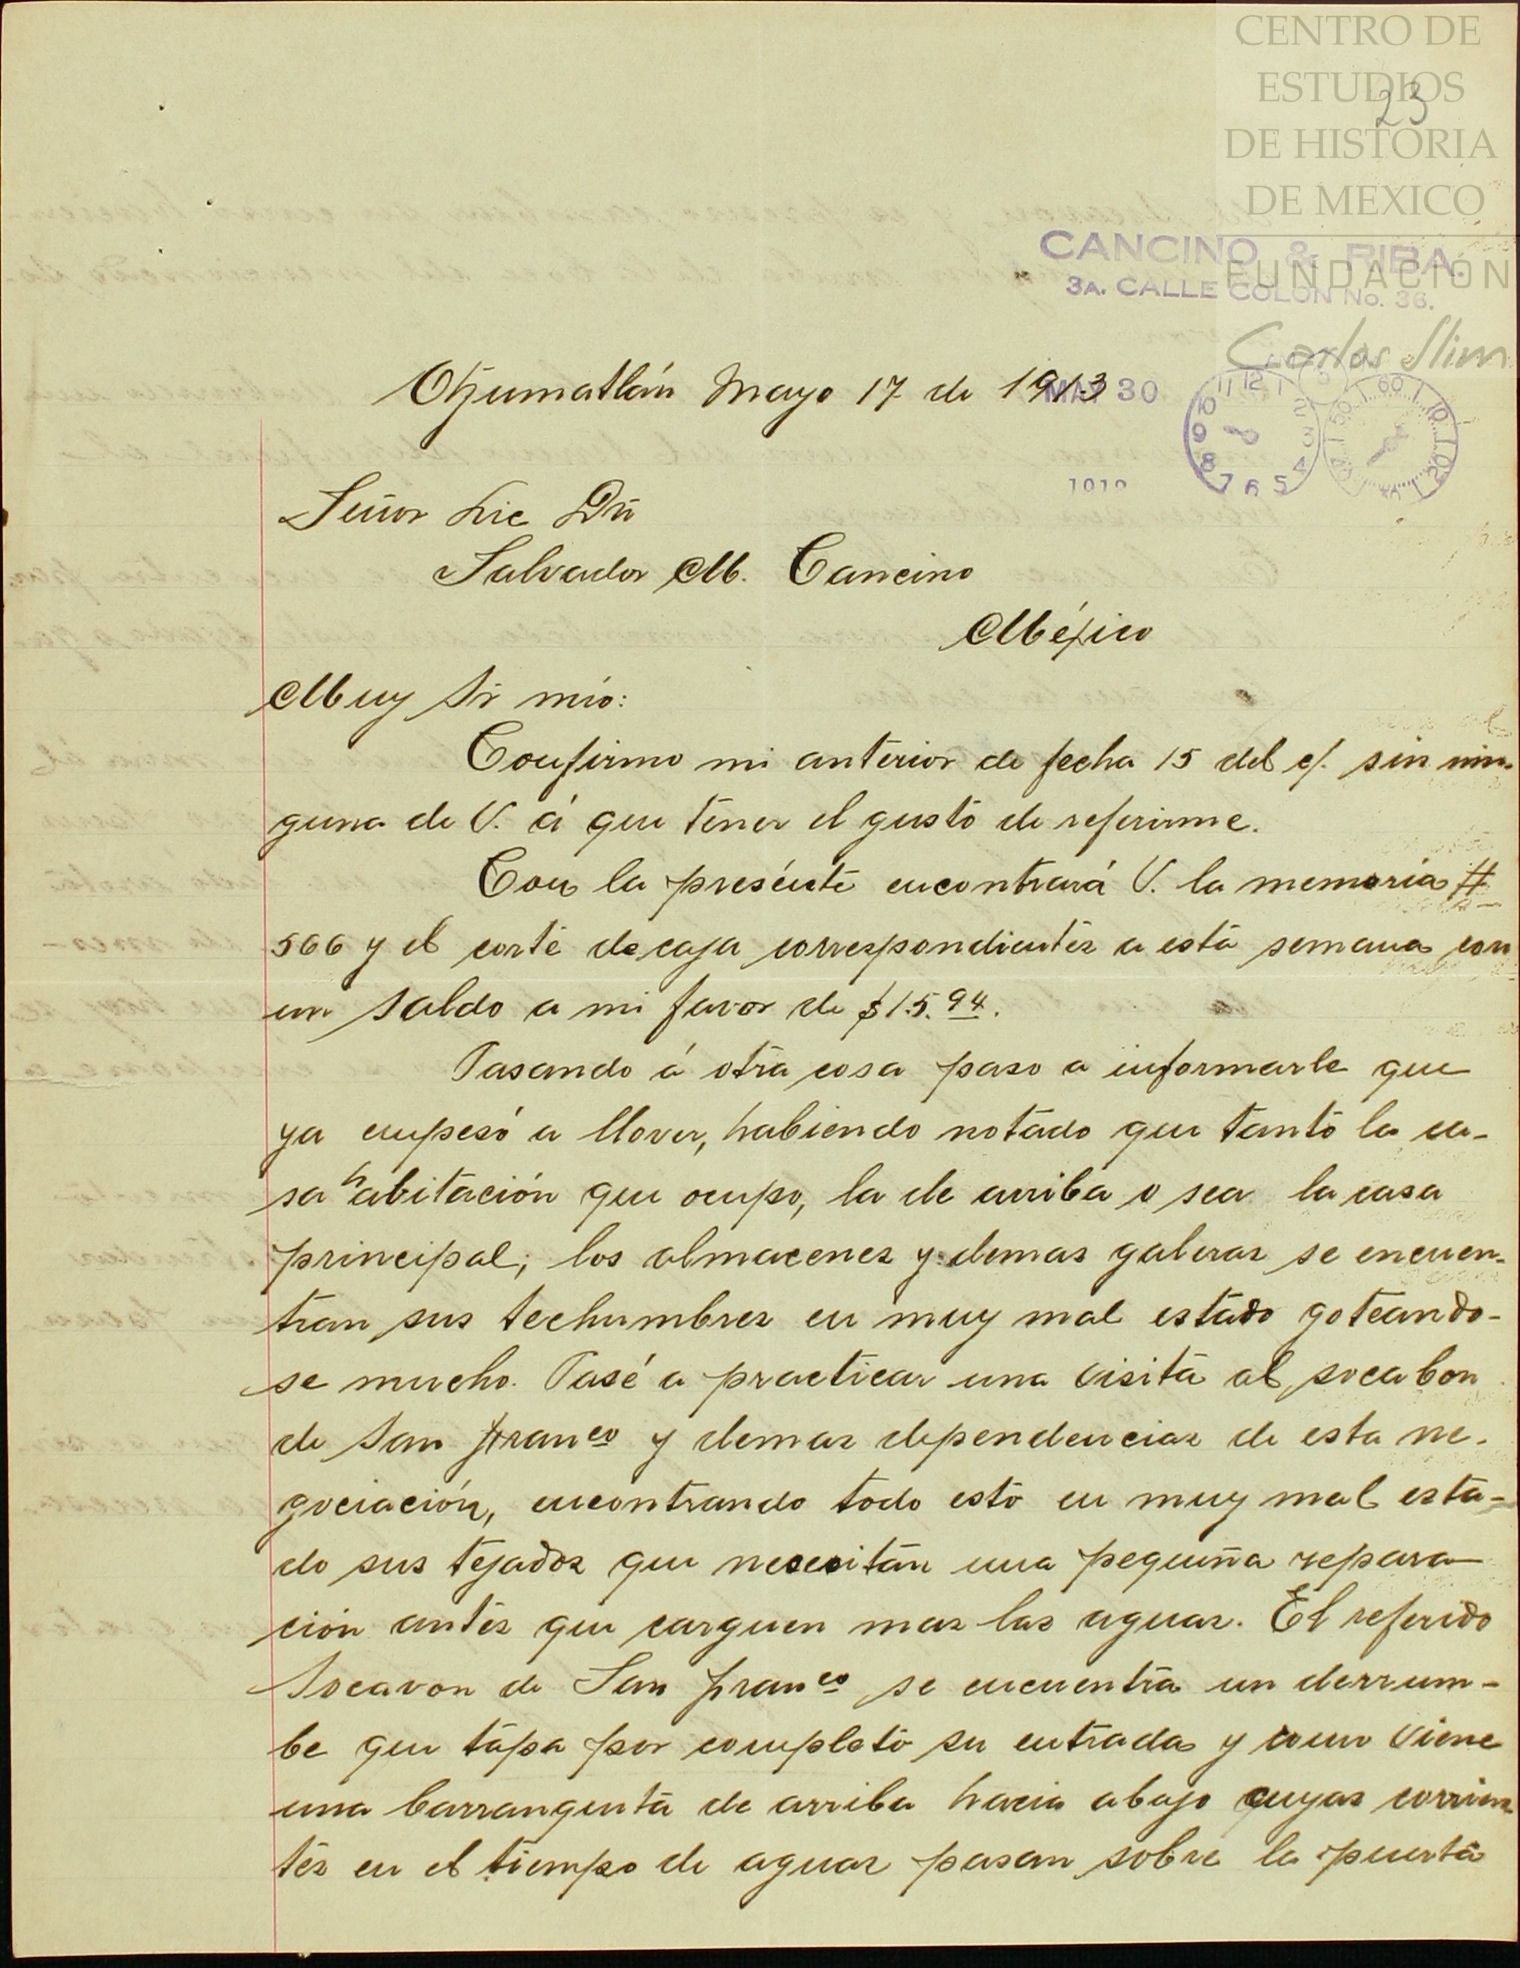 CENTRO DE
ESTUDIOS
DE HISTORIA
DE MEXICO
23
FUNDACIÓN
Carlos Slim
CANCINO & RIBA.
3A. CALLE COLON No. 36.
MAY 30
Ozumatlán Mayo 17 de 1913
Señor Lic Dn
Salvador M. Cancino
México
Muy Sr mio:
Confirmo mi anterior de fecha 15 del c/. sin nin-
guna de V. á que tener el gusto de referirme.
Con la presénte encontrará V. la memoria #
566 y el corte de caja correspondientes a esta semana con
un saldo a mi favor de $15.94.
Pasando á otra cosa paso a informarle que
ya empesó a llover, habiendo notado que tanto la ca-
sa habitación que ocupo, la de arriba o sea la casa
principal; los almacenes y demas galeras se encuen-
tran sus techumbres en muy mal estado goteando-
se mucho. Pasé a practicar una visita al socabon
de San Franco y demas dependencias de esta ne-
gociación, encontrando todo esto en muy mal esta-
do sus tejados que necesitan una pequeña repara-
ción antes que carguen mas las aguas. El referido
Socavon de San Franco se encuentra un derrum-
be que tapa por completo su entrada y como viene
una barranquita de arriba hacia abajo cuyas corrien
tes en el tiempo de aguas pasan sobre la puerta